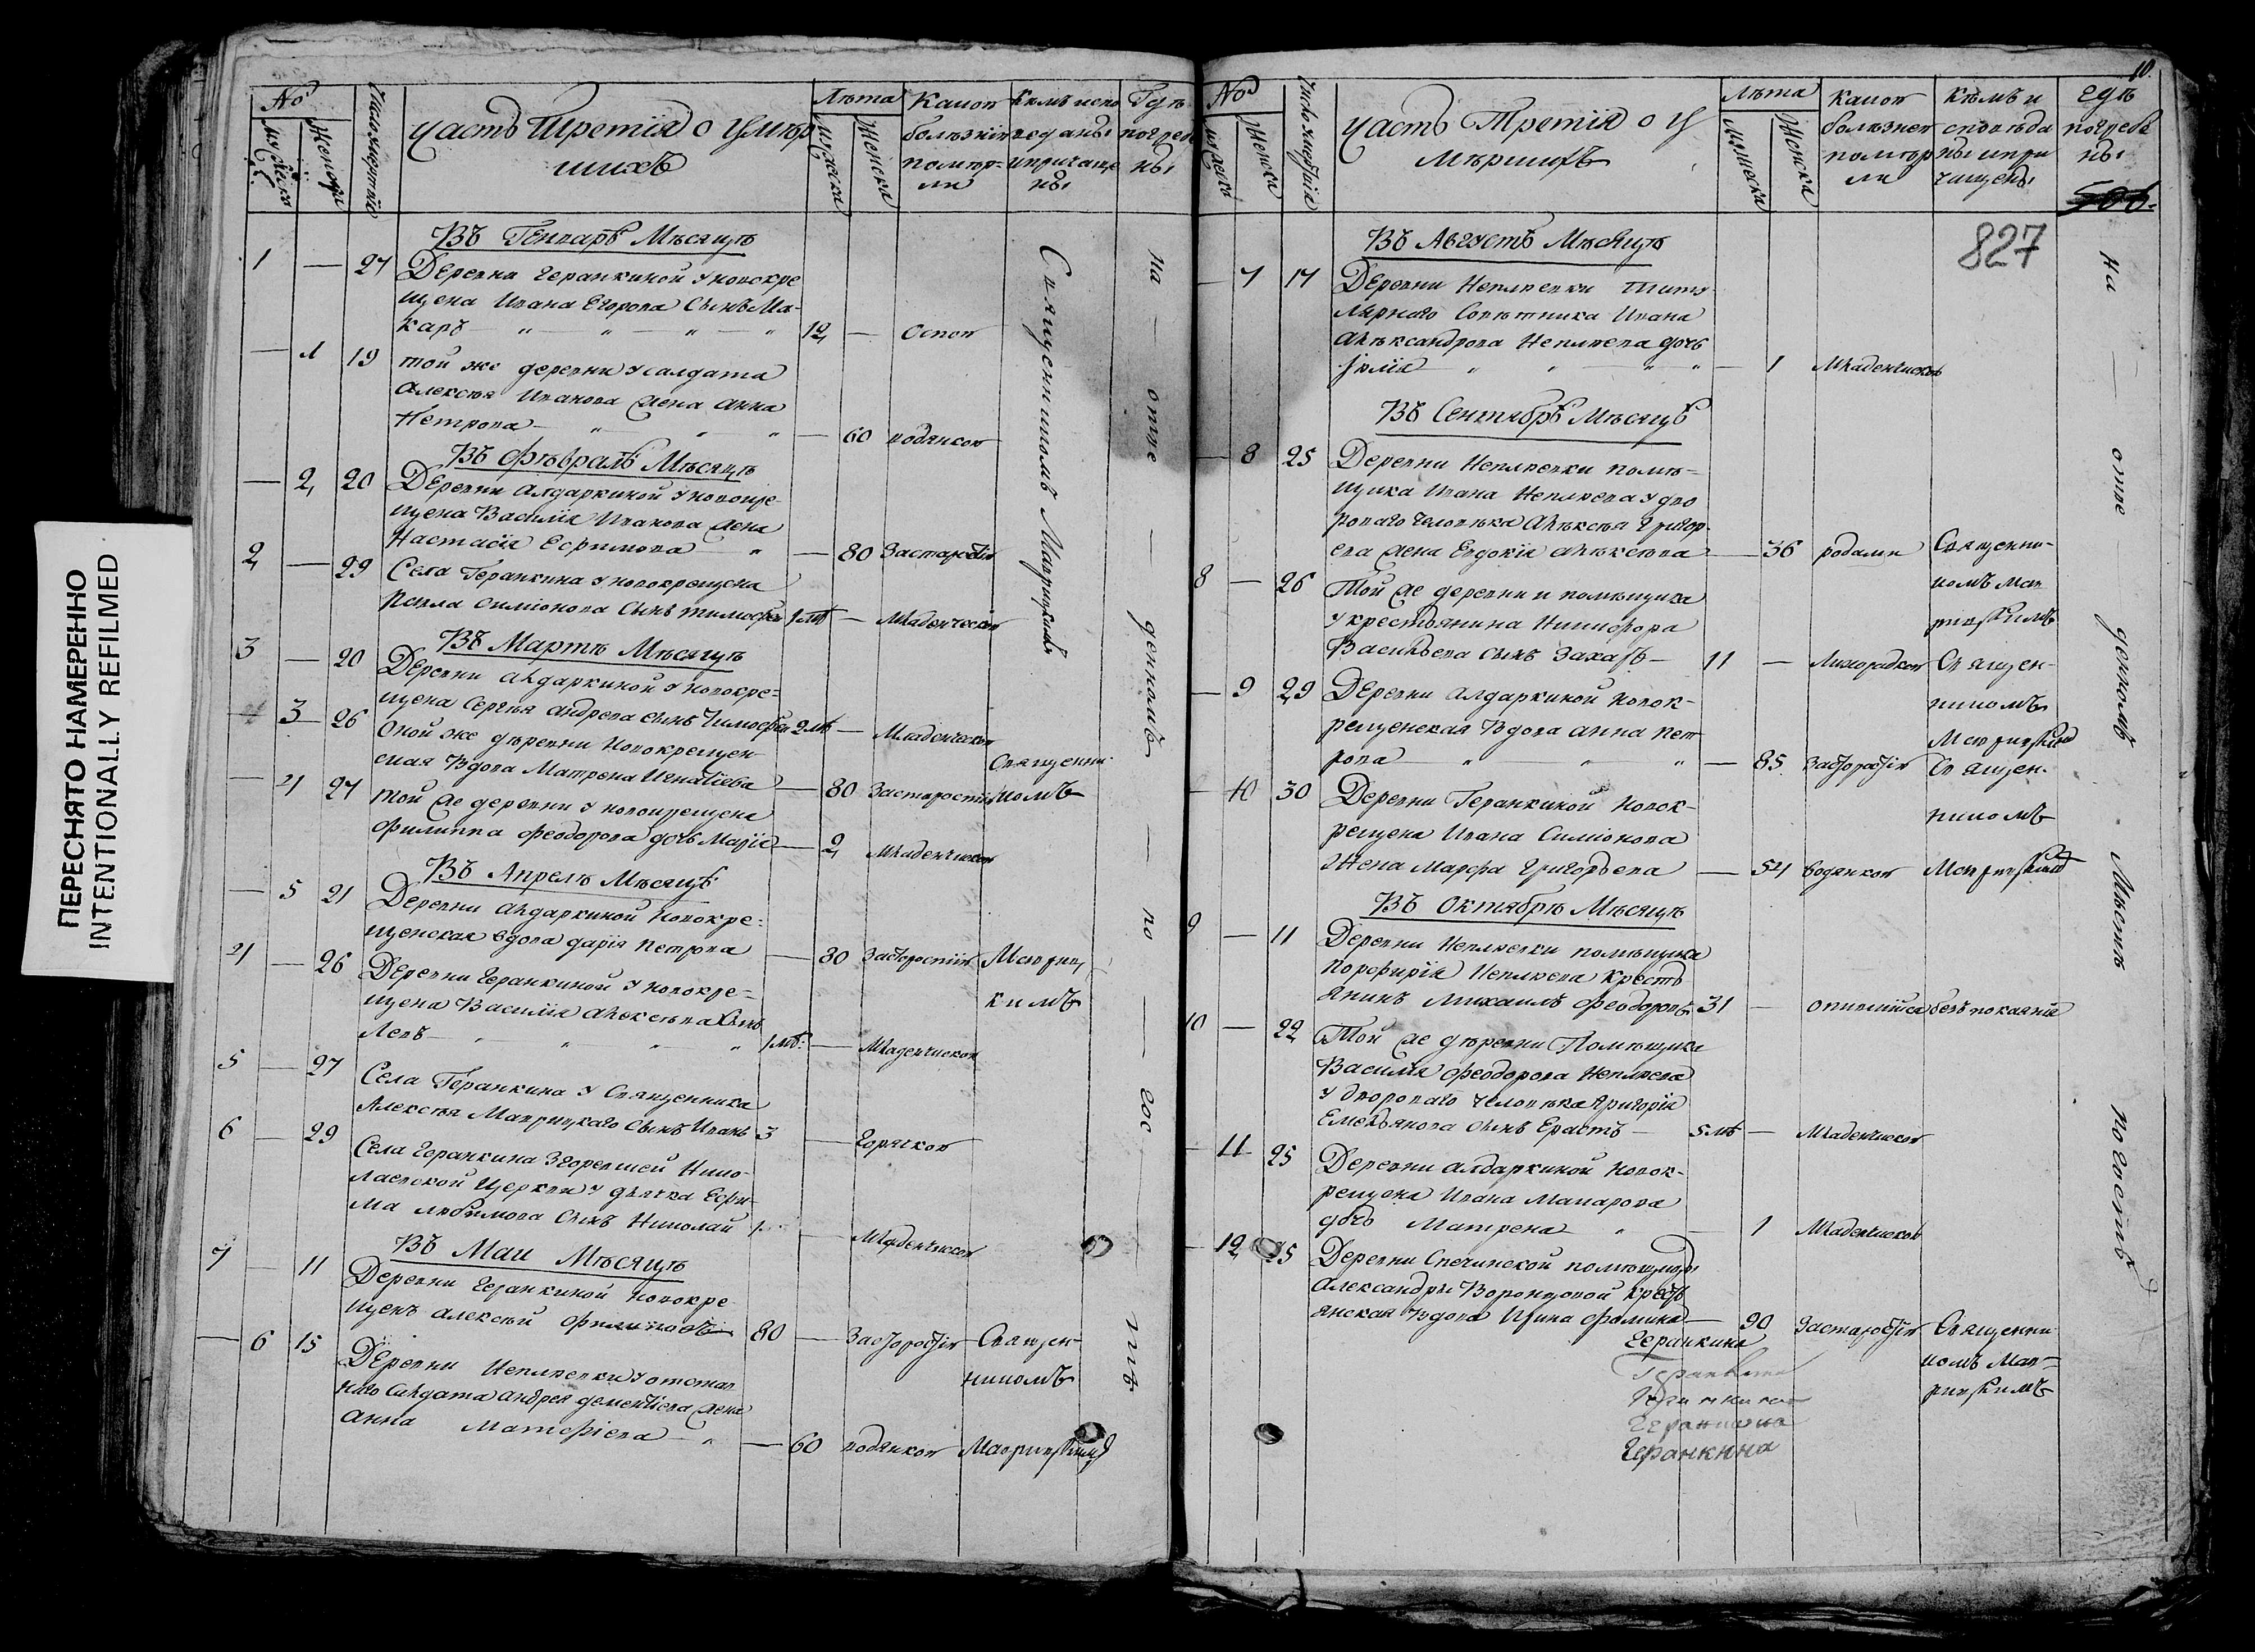 ПЕРЕСНЯТО НАМЕРЕННО
INTENTIONALLY REFILMED
№
Мужеска
Женска
Число умертвій
Часть Третія о умѣр
шихъ
Лѣта
Мужеска
Женска
Какою
болѣзнію
померли
Кѣмъ испо
ведоны
и причаще
ны
Гдѣ
погребе
ны
Въ Генварѣ Мѣсяцѣ
1 — 27 Деревни Геранкиной у новокре
щена Ивана Егорова сынъ Ма-
каръ 12 — Оспою
— 1 19 той же деревни у салдата
Алексѣя Иванова жена Анна
Петрова — 60 водяною
Въ Февралѣ Мѣсяцѣ
— 2 20 Деревни Алдаркиной у новокре
щена Василія Иванова жена
Настасія Ефимова — 80 Застаростію
2 — 29 Села Геранкина у новокрещена
Павла Симіонова сынъ Тимофей 1 мѣ — Младенческою
Въ Мартѣ Мѣсяцѣ
3 — 20 Деревни Алдаркиной у новокре-
щена Сергѣя Андреева сынъ Тимофей 2 мѣ — Младенческою
— 3 26 Оной же деревни Новокрещен
ская Вдова Матрена Игнатіева — 80 Застаростію Священни
комъ
— 4 27 той же деревни у новокрещена
Филиппа Феодорова дочь Марія — 2 Младенческою
Въ Апрелѣ Мѣсяцѣ
— 5 21 Деревни Алдаркиной Новокре-
щенская вдова Дарія Петрова — 30 Застаростію Маврин
кимъ
4 — 26 Деревни Геранкиной у новокре-
щена Василія Алексѣева сынъ
Левъ 1 мѣ: — Младенческою
5 — 27 Села Геранкина у Священника
Алексѣя Маврицкаго сынъ Иванъ 3 — Горячкою
6 — 29 Села Геранкина Згоревшей Нико
лаевской Церкви у дьячка Ефи-
ма Любимова сынъ Николай 1 — Младенческою
Въ Маи Мѣсяцѣ
7 — 11 Деревни Геранкиной Новокре
щенъ Алексѣй Филиповъ 80 — Застаростію Священ-
никомъ
— 6 15 Деревни Неплюевки у отстав
наго Салдата Андрея Дементіева жена
Анна Матфіева — 60 водяною
Священникомъ
на отве денномъ по гос тѣ
10.
№
Женска
Число умертвія
Часть Третія о у
мѣршихъ
Лѣта
Мужеска
Женска
Какою
болѣзнею
померли
Кѣмъ и
споведа
ны и при
чащены
Гдѣ
погребе
ны
827
Въ Августѣ Мѣсяцѣ
— 7 17 Деревни Неплюевки Титу
лярнаго Советника Ивана
Алѣксандрова Неплюева дочь
Юлія — 1 Младенческою
Въ Сентябрѣ Мѣсяцѣ
— 8 25 Деревни Неплюевки помѣ-
щика Ивана Неплюева у дво
роваго человѣка Алѣксѣя Григор
ева жена Евдокія Алѣксѣева — 36 родами Священни-
комъ Мав
8 — 26 Той же деревни и помѣщика
у крестьянина Никифора
Васильева сынъ Захаръ 11 — Лихорадкою Священ-
никомъ
— 9 29 Деревни Алдаркиной новок-
рещенская Вдова Анна Пет
рова — 85 Застаростію Священ-
никомъ
— 10 30 Деревни Геранкиной новок-
рещена Ивана Симіонова
Жена Марфа Григорьева — 54 водяною
Въ Октябрѣ Мѣсяцѣ
9 — 11 Деревни Неплюевки помѣщика
Порфирія Неплюева Кресть
янинъ Михаилъ Феодоровъ 31 — опившійся безъ покаянія
10 — 22 Той же деревни Помѣщика
Василія Феодорова Неплюева
у двороваго человѣка Григорія
Емельянова сынъ Ерастъ 5 мѣ — Младенческою
— 11 25 Деревни Алдаркиной новок-
рещена Ивана Макарова
дочь Матрена — 1 Младенческою
— 12 25 Деревни Спечинской помѣщицы
Александры Воронцовой Кресть
янская Вдова Ирина Фомина — 90 Застаростію Священни
комъ Мав-
Геранкина
Геранкина
Геранкина
Геранкина
Геранкина
на отве денномъ Мѣстѣ погостѣ